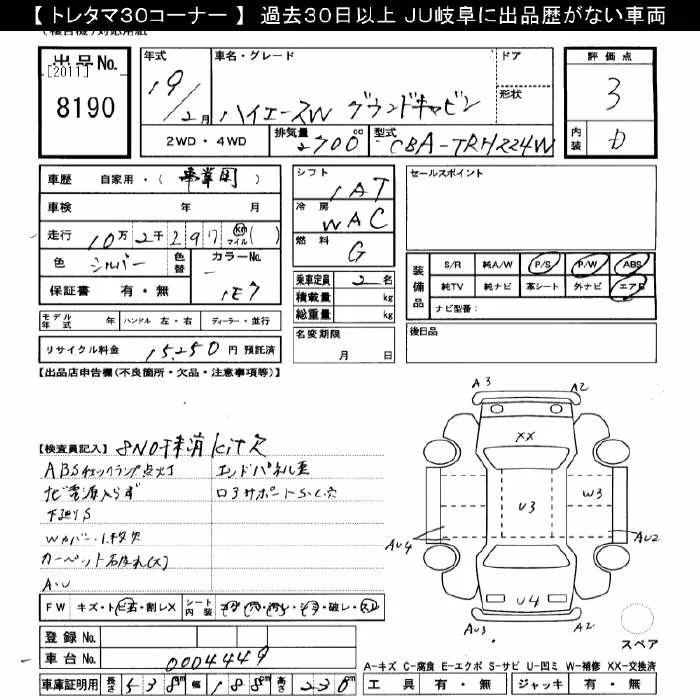 【 トレタマ30コーナー 】 過去30日以上 JU岐阜に出品歴がない車両
出品No.
[2011]
8190
年式
19/2月
車名・グレード
ハイエースW グランドキャビン
ドア
形状
評価点
3
内装
D
2WD・4WD
排気量 2700 cc
型式 CBA-TRH224W
車歴 自家用・( 事業用 )
車検 年 月
走行 10万2千297 km マイル ( )
色 シルバー 色替 カラーNo. 1E7
保証書 有・無
モデル年式 年 ハンドル 左・右 ディーラー・並行
リサイクル料金 15,250 円 預託済
シフト 1AT
冷房 WAC
燃料 G
乗車定員 2 名
積載量 kg
総重量 kg
名変期限 月 日
セールスポイント
装備品
S/R 純A/W P/S P/W ABS
純TV 純ナビ 革シート 外ナビ エアB
ナビ型番:
後日品
【出品店申告欄(不良箇所・欠品・注意事項等)】
【検査員記入】 8NO kit欠
ABSチェックランプ点灯 エンドパネル歪
下廻りS
A・U
FW キズ・トビ石・割レX シート内装
登録No.
車台No. 0004449
車庫証明用 長さ 538 cm 幅 188 cm 高さ 230 cm
A3 A2
XX
U3 W3
AU4 AU2
U4
AU3 A2
スペア
A-キズ C-腐食 E-エクボ S-サビ U-凹ミ W-補修 XX-交換済
工具 有・無 ジャッキ 有・無